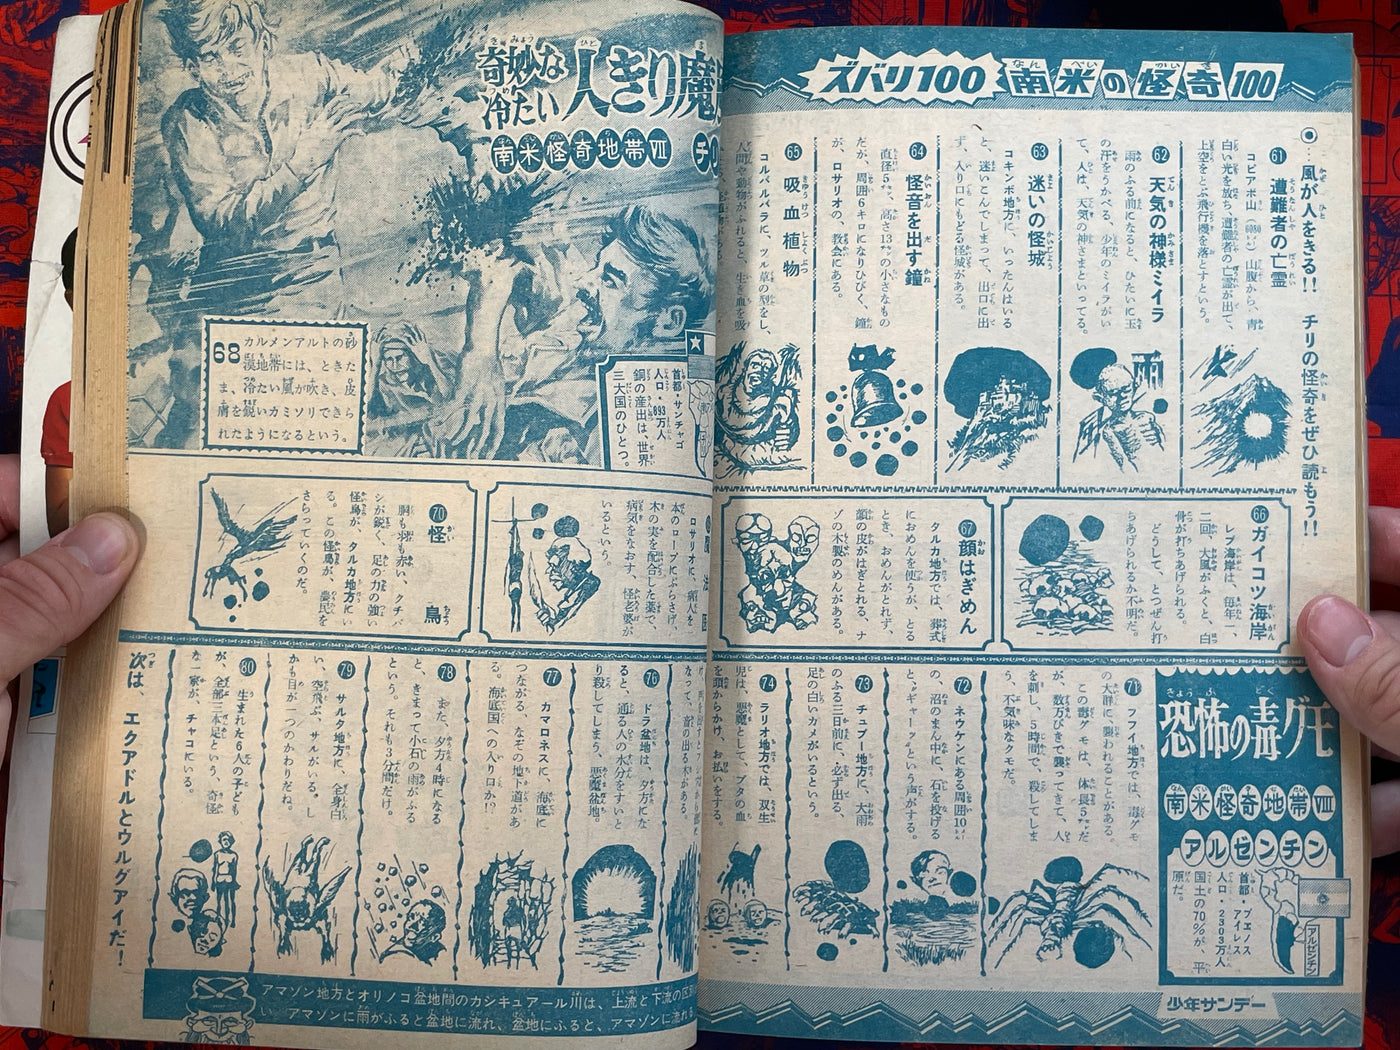 ズバリ100 南米の怪奇100
◉…風が人をきる!! チリの怪奇をぜひ読もう!!
61 遭難者の亡霊
コピアポ山(6080㍍)山腹から、青
白い光を放ち、遭難者の亡霊が出て、
上空をとぶ飛行機を落とすという。
62 天気の神様ミイラ
雨のふる前になると、ひたいに玉
の汗をうかべる、少年のミイラがい
て、人は、天気の神さまといってる。
63 迷いの怪城
コキンボ地方に、いったんはいる
と、迷いこんでしまって、出口に出
ず、入り口にもどる怪城がある。
64 怪音を出す鐘
直径5㌢、高さ13㌢の小さなもの
だが、周囲6キロになりひびく、鐘
が、ロサリオの、教会にある。
65 吸血植物
コルバルバラに、ツル草の型をし、
人間や動物がふれると、生き血を吸
奇妙な
冷たい
人きり魔
南米怪奇地帯Ⅶ
チ
68 カルメンアルトの砂
漠地帯には、ときた
ま、冷たい風が吹き、皮
膚を鋭いカミソリできら
れたようになるという。
首都・サンチャゴ
人口・893万人
銅の産出は、世界
三大国のひとつ。
66 ガイコツ海岸
レブ海岸は、毎年一、
二回、大風がふくと、白
骨が打ちあげられる。
どうして、とつぜん打
ちあげられるか不明だ。
67 顔はぎめん
タルカ地方では、葬式
におめんを使うが、とる
とき、おめんがとれず、
顔の皮がはぎとれる、ナ
ゾの木製のめんがある。
ロサリオに、病人を一
本のロープにぶらさげ、
木の実を配合した薬で、
病気をなおす、怪老婆が
いるという。
70 怪鳥
胴も羽も赤い、クチバ
シが鋭く、足の力の強い
怪鳥が、タルカ地方にい
る。この怪鳥が、農民を
さらっていくのだ。
恐怖の毒グモ
南米怪奇地帯Ⅷ
アルゼンチン
首都・ブエノス
アイレス
人口・2303万人
国土の70%が平
原だ。
アルゼンチン
71 フフイ地方では、毒グモ
の大群に襲われることがある。
この毒グモは、体長5㌢だ
が、数万びきで襲ってきて、人
を刺し、5時間で、殺してしま
う、不気味なクモだ。
72 ネウケンにある周囲10㍍
の、沼のまん中に、石を投げる
と、〝ギャーッ〟という声がする。
73 チュブー地方に、大雨
のふる三日前に、必ず出る、
足の白いカメがいるという。
74 ラリオ地方では、双生
児は、悪魔として、ブタの血
を頭からかけ、お払いをする。
なって、首の出る木がある。
76 ドラ盆地は、夕方にな
ると、通る人の水分をすいと
り殺してしまう、悪魔盆地。
77 カマロネスに、海底に
つながる、なぞの地下道があ
る。海底国への入り口か!?
78 また、夕方4時になる
と、きまって小石の雨がふる
という。それも3分間だけ。
79 サルタ地方に、全身白
い、空飛ぶ、サルがいる。し
かも目が一つのかわりだね。
80 生まれた6人の子ども
が、全部三本足という、奇怪
な一家が、チャコにいる。
次は、エクアドルとウルグアイだ!
アマゾン地方とオリノコ盆地間のカシキュアール川は、上流と下流の区別
い アマゾンに雨がふると盆地に流れ、盆地にふると、アマゾンに流れる
少年サンデー